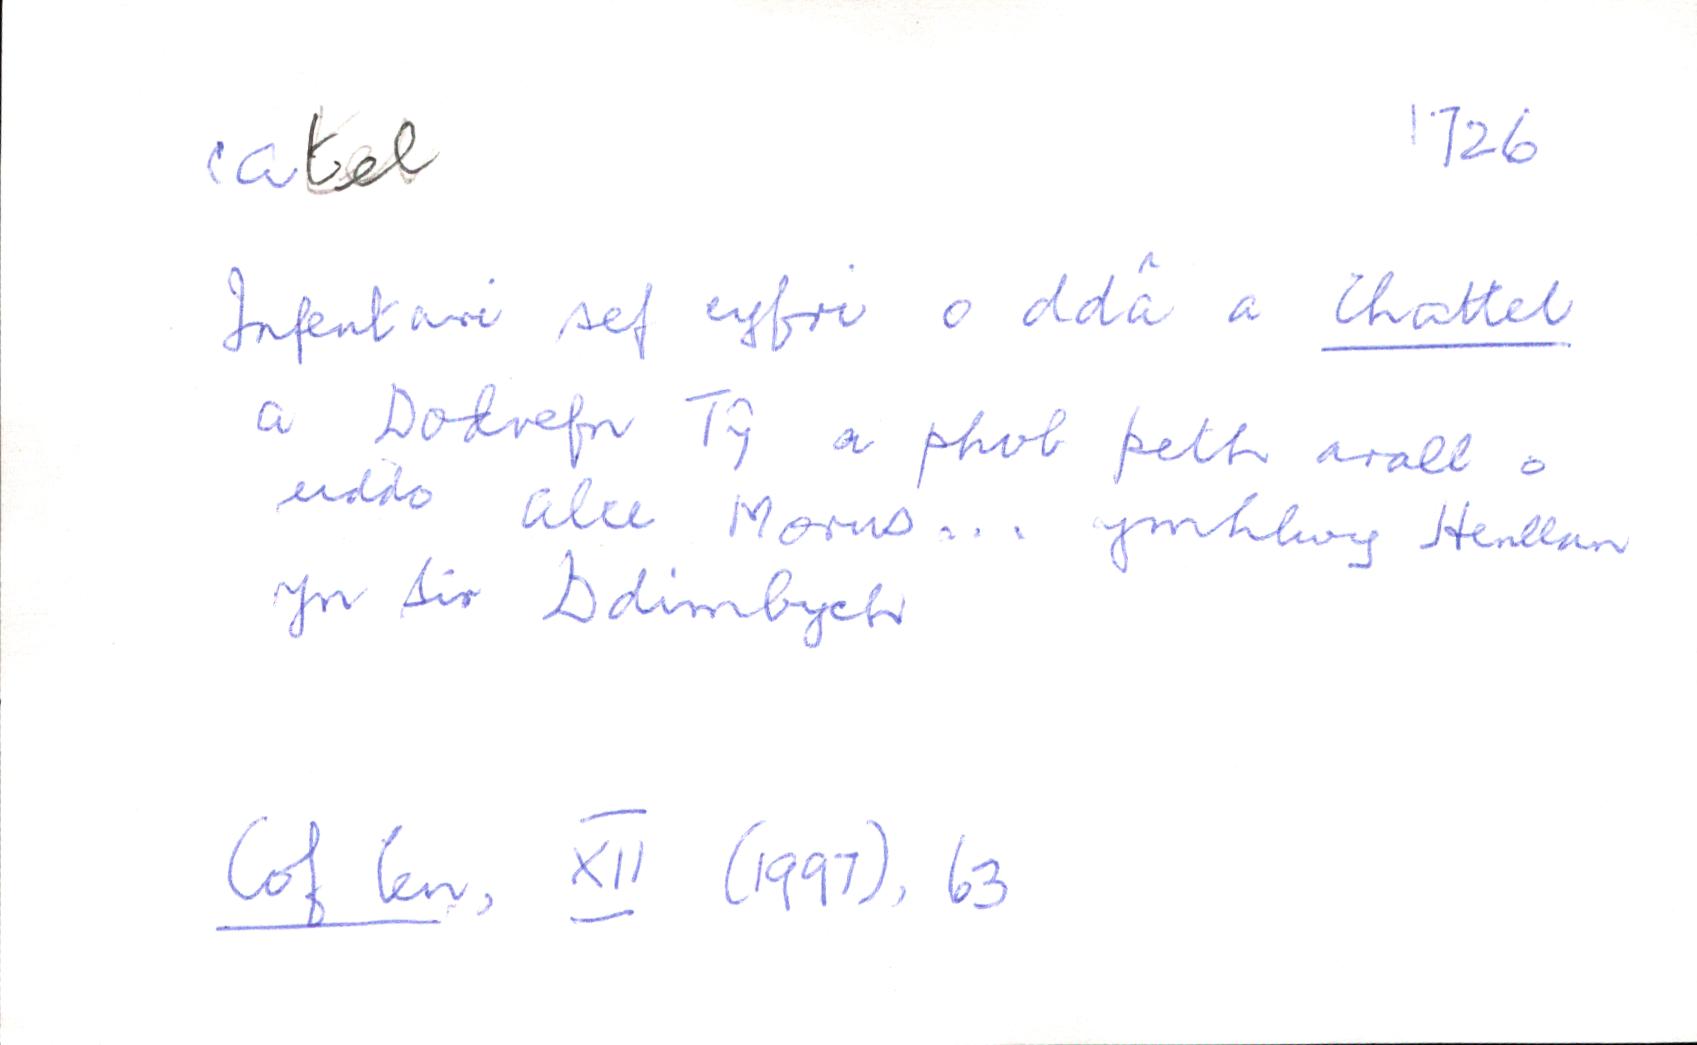 catel 1726
Infentari sef cyfri o ddâ a Chattel
a Dodrefn Tŷ a phob peth arall o
uddo Alce Morus... ymhlwy Henllan
yn Sir Ddimbych
Cof Cen, XII (1997), 63